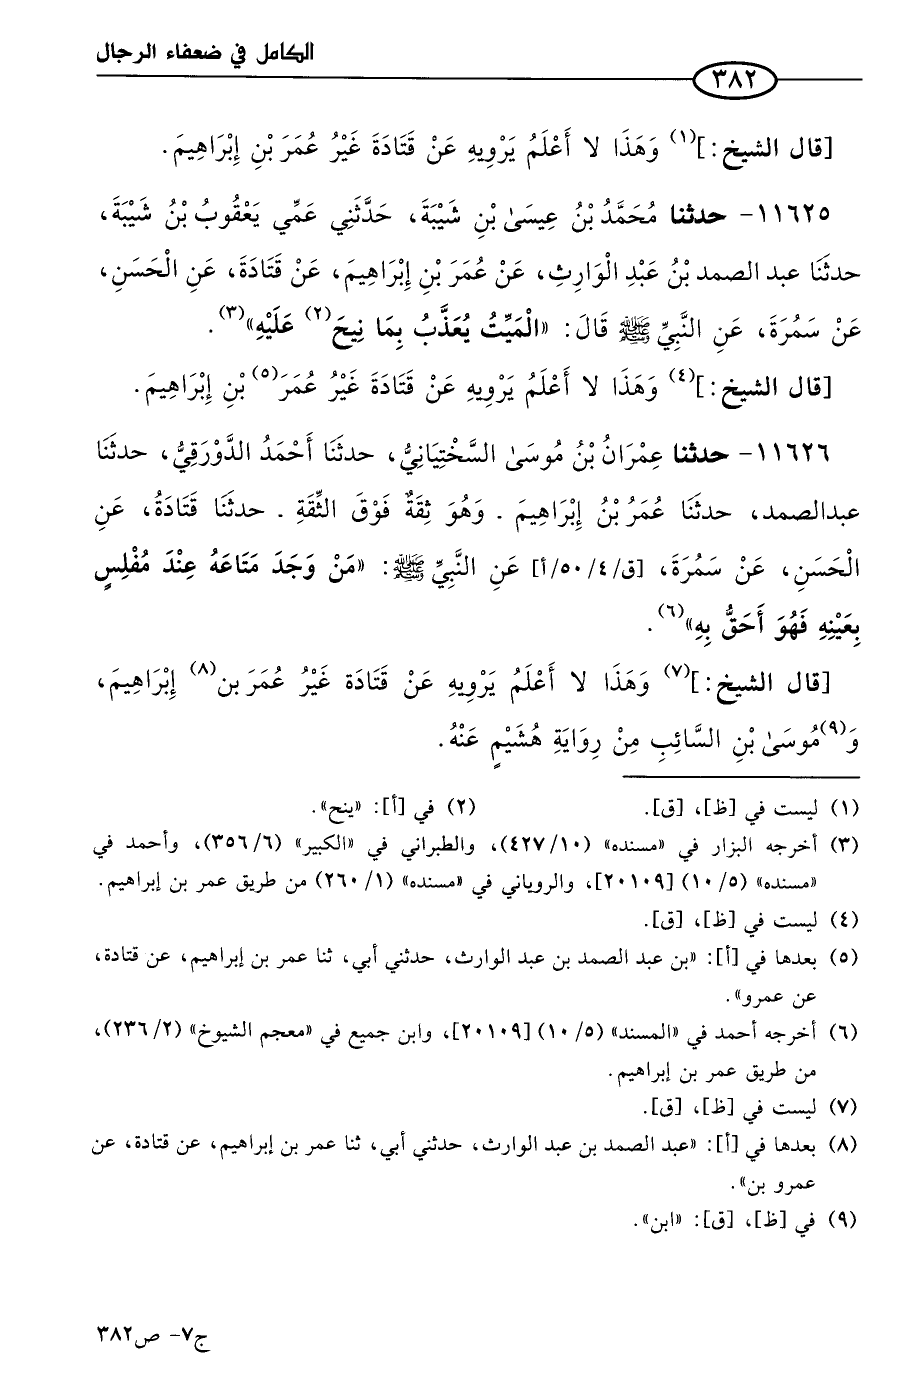 الكامل في ضعفاء الرجال
٣٨٢
[قال الشيخ:](١) وَهَذَا لا أَعْلَمُ يَرْوِيهِ عَنْ قَتَادَةَ غَيْرُ عُمَرَ بْنِ إِبْرَاهِيمَ.
١١٦٢٥- حدثنا مُحَمَّدُ بْنُ عِيسَىٰ بْنِ شَيْبَةَ، حَدَّثَنِي عَمِّي يَعْقُوبُ بْنُ شَيْبَةَ،
حدثَنَا عبد الصمد بْنُ عَبْدِ الْوَارِثِ، عَنْ عُمَرَ بْنِ إِبْرَاهِيمَ، عَنْ قَتَادَةَ، عَنِ الْحَسَنِ،
عَنْ سَمُرَةَ، عَنِ النَّبِيِّ ﷺ قَالَ: «الْمَيِّتُ يُعَذَّبُ بِمَا نِيحَ(٢) عَلَيْهِ»(٣).
[قال الشيخ:](٤) وَهَذَا لا أَعْلَمُ يَرْوِيهِ عَنْ قَتَادَةَ غَيْرُ عُمَرَ(٥) بْنِ إِبْرَاهِيمَ.
١١٦٢٦- حدثنا عِمْرَانُ بْنُ مُوسَىٰ السَّخْتِيَانِيُّ، حدثنَا أَحْمَدُ الدَّوْرَقِيُّ، حدثنَا
عبدالصمد، حدثنَا عُمَرُ بْنُ إِبْرَاهِيمَ . وَهُوَ ثِقَةٌ فَوْقَ الثِّقَةِ . حدثنَا قَتَادَةُ، عَنِ
الْحَسَنِ، عَنْ سَمُرَةَ، [ق/٤/٥٠/أ] عَنِ النَّبِيِّ ﷺ: «مَنْ وَجَدَ مَتَاعَهُ عِنْدَ مُفْلِسٍ
بِعَيْنِهِ فَهُوَ أَحَقُّ بِهِ»(٦).
[قال الشيخ:](٧) وَهَذَا لا أَعْلَمُ يَرْوِيهِ عَنْ قَتَادَة غَيْرُ عُمَرَ بن(٨) إِبْرَاهِيمَ،
وَ(٩)مُوسَىٰ بْنِ السَّائِبِ مِنْ رِوَايَةِ هُشَيْمٍ عَنْهُ.
(١) ليست في [ظ]، [ق]. (٢) في [أ]: «ينح».
(٣) أخرجه البزار في «مسنده» (١٠/ ٤٢٧)، والطبراني في «الكبير» (٦/ ٣٥٦)، وأحمد في
«مسنده» (٥/ ١٠) [٢٠١٠٩]، والروياني في «مسنده» (١/ ٢٦٠) من طريق عمر بن إبراهيم.
(٤) ليست في [ظ]، [ق].
(٥) بعدها في [أ]: «بن عبد الصمد بن عبد الوارث، حدثني أبي، ثنا عمر بن إبراهيم، عن قتادة،
عن عمرو».
(٦) أخرجه أحمد في «المسند» (٥/ ١٠) [٢٠١٠٩]، وابن جميع في «معجم الشيوخ» (٢/ ٢٣٦)،
من طريق عمر بن إبراهيم.
(٧) ليست في [ظ]، [ق].
(٨) بعدها في [أ]: «عبد الصمد بن عبد الوارث، حدثني أبي، ثنا عمر بن إبراهيم، عن قتادة، عن
عمرو بن».
(٩) في [ظ]، [ق]: «ابن».
ج٧- ص٣٨٢